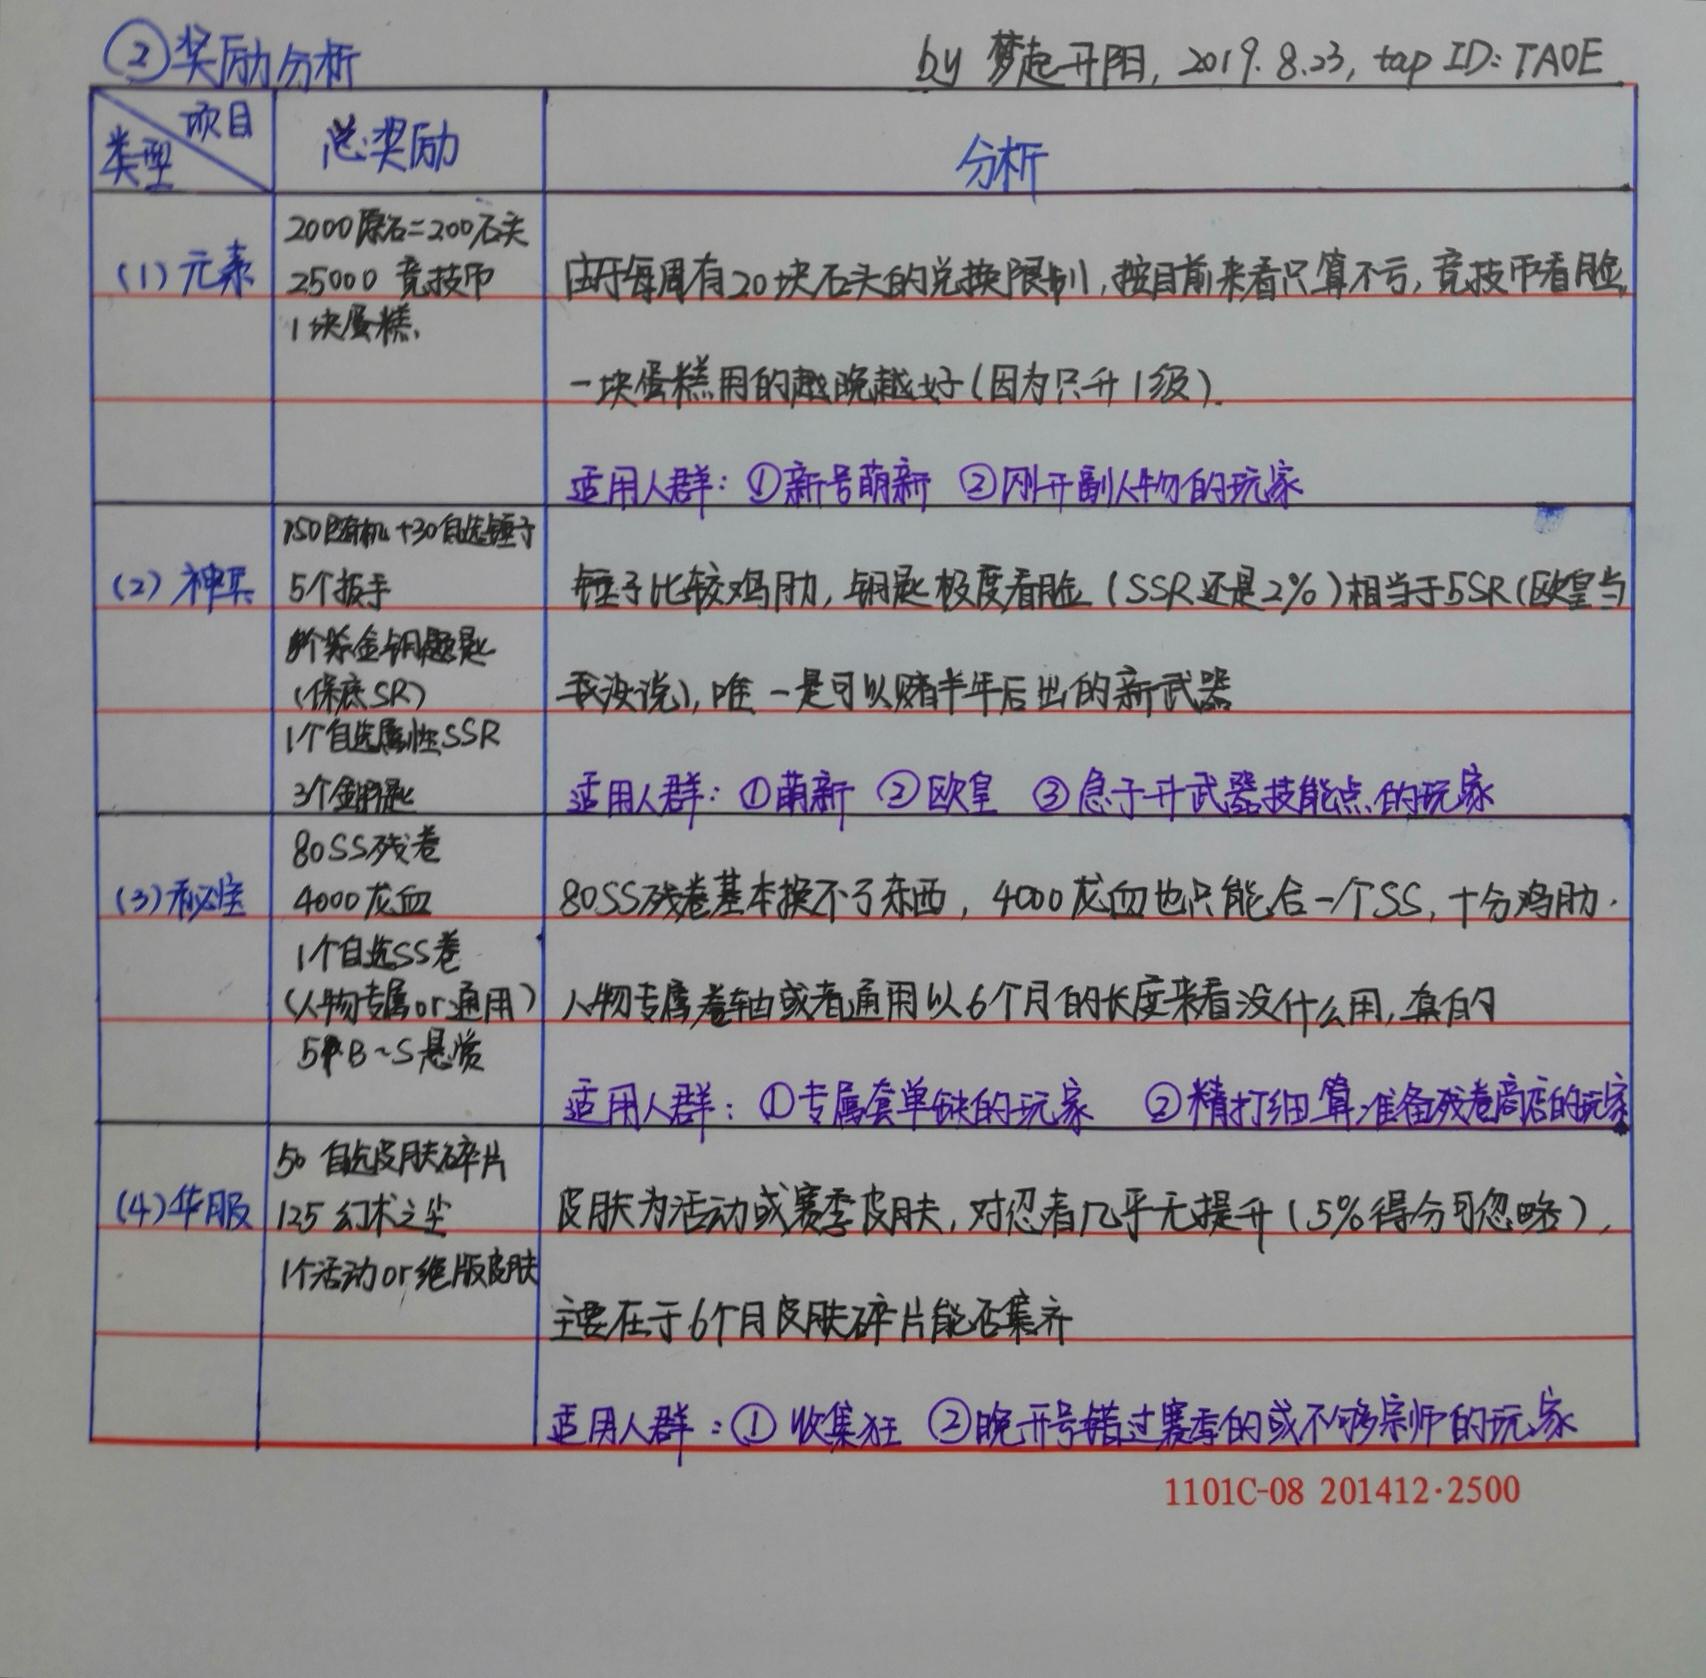 ②奖励分析
by 梦起开阳, 2019.8.23, tap ID: TAOE
项目
类型
总奖励
分析
(1)元素
2000原石=200石头
25000 竞技币
1块蛋糕.
由于每周有20块石头的兑换限制,按目前来看只算不亏,竞技币看脸,
一块蛋糕用的越晚越好(因为只升1级).
适用人群: ①新号萌新 ②刚开副人物的玩家
(2)神兵
150随机+30自选锤子
5个扳手
个紫金钥匙
(保底SR)
1个自选属性SSR
3个金钥匙
锤子比较鸡肋,钥匙极度看脸(SSR还是2%)相当于5SR(欧皇当
我没说),唯一是可以赌半年后出的新武器
适用人群: ①萌新 ②欧皇 ③急于升武器技能点的玩家
(3)秘宝
80SS残卷
4000龙血
1个自选SS卷
(人物专属or通用)
5个B~S悬赏
80SS残卷基本换不了东西,4000龙血也只能合一个SS,十分鸡肋.
人物专属卷轴或者通用以6个月的长度来看没什么用,真的
适用人群: ①专属套单缺的玩家 ②精打细算准备残卷商店的玩家
(4)华服
50 自选皮肤碎片
125幻术之尘
1个活动or绝版皮肤
皮肤为活动或赛季皮肤,对忍者几乎无提升(5%得分可忽略),
主要在于6个月皮肤碎片能否集齐
适用人群:① 收集狂 ②晚开号错过赛季的或不够宗师的玩家
1101C-08 201412·2500